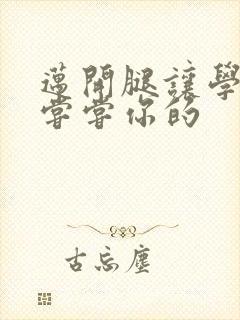 邁開腿讓學
嘗嘗你的
古忘塵